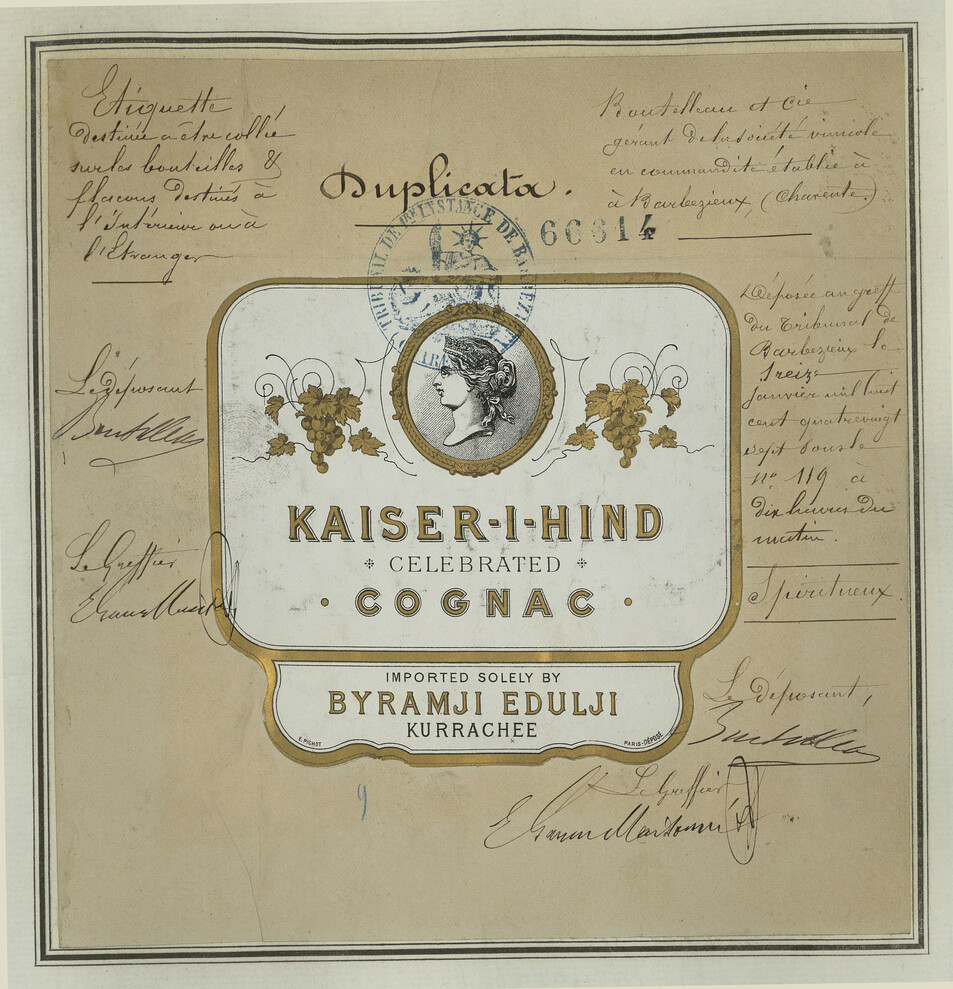 Etiquette
destinée a être collée
sur les bouteilles &
flacons destinés à
l'intérieur ou à
l'Etranger
Duplicata.
Boutelleau et Cie
gérant de la société vinicole
en commandite établie à
à Barbezieux, (Charente.)
60614
TRIBUNAL DE 1RE INSTANCE DE BARBEZIEUX
Déposée au greffe
du Tribunal de
Barbezieux le
treize
janvier mil huit
cent quatre vingt
sept sous le
no 119 à
dix heures du
matin.
Spiritueux.
Le déposant
Boutelleau
Le Greffier
KAISER-I-HIND
CELEBRATED
COGNAC
IMPORTED SOLELY BY
BYRAMJI EDULJI
KURRACHEE
E. PICHOT
PARIS-DÉPOSÉ
Le déposant,
Boutelleau
Le Greffier
9